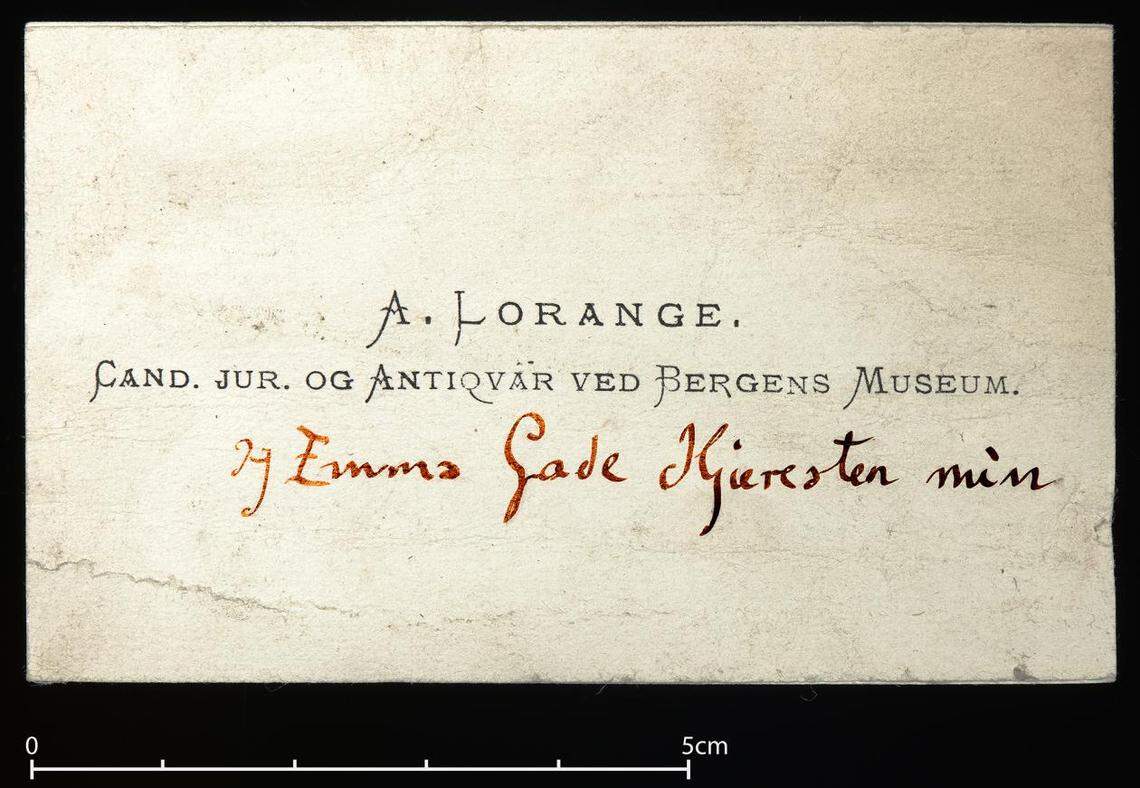 A. LORANGE.
CAND. JUR. OG ANTIQVAR VED BERGENS MUSEUM.
og Emma Gade Hjæresten min
0 5cm